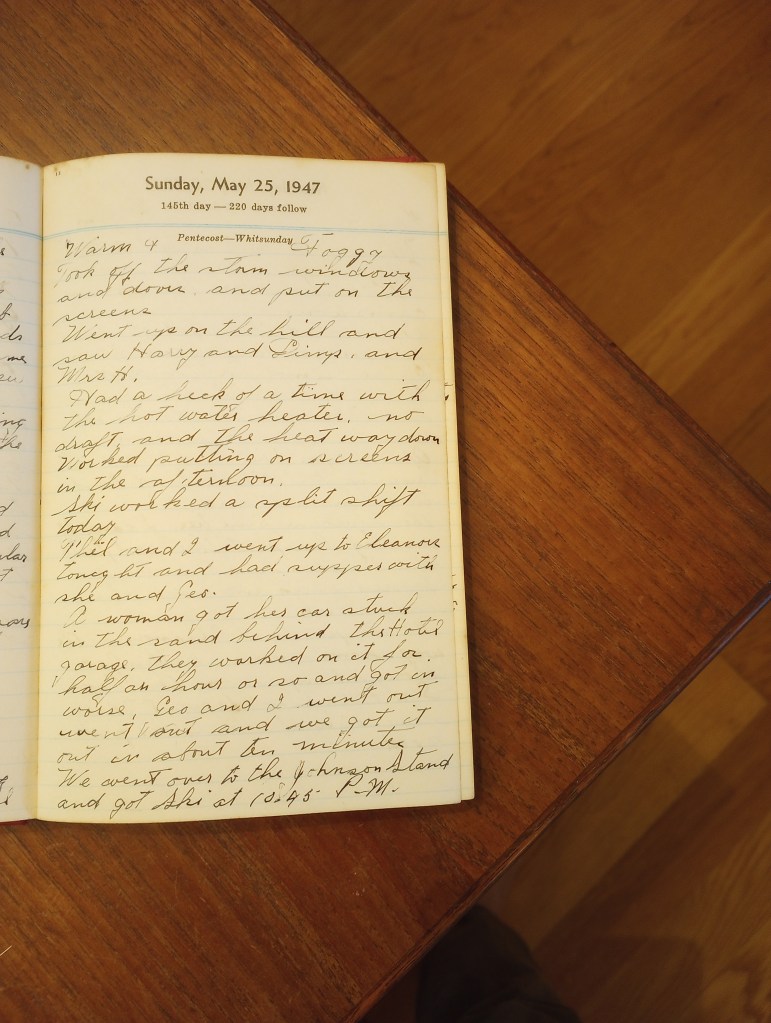 Sunday, May 25, 1947
145th day — 220 days follow
Pentecost—Whitsunday
Warm & Foggy
Took off the storm windows
and doors and put on the
screens
Went up on the hill and
saw Harry and Limp. and
Mrs H.
Had a heck of a time with
the hot water heater, no
draft, and the heat way down
Worked putting on screens
in the afternoon.
Ski worked a split shift
today
Thel and I went up to Eleanors
tonight and had supper with
she and Geo.
A woman got her car stuck
in the sand behind the Hotel
garage, they worked on it for
half an hour or so and got in
worse, Geo and I went out
went out and we got it
out in about ten minutes
We went over to the Johnson Stand
and got Ski at 10:45 P.M.